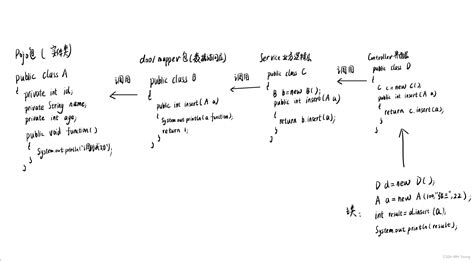 Pojo包 ( 实体类 )
public class A
{
private int id;
private String name;
private int age;
public void function()
{
System.out.println("
}
}
调用
dao/mapper包(数据访问层)
public class B
{
public int insert(A a)
{
System.out.println(a.function);
return 1;
}
调用
Service 业务逻辑层
public class C
{
B b=new B();
public int insert(A a)
{
return b.insert(a);
}
}
调用
Controller 界面层
public class D
{
C c=new C();
public int insert(A a)
{
return c.insert(a);
}
}
D d=new D();
A a=new A(101,"张三",22);
int result=d.insert(a);
System.out.println(result);